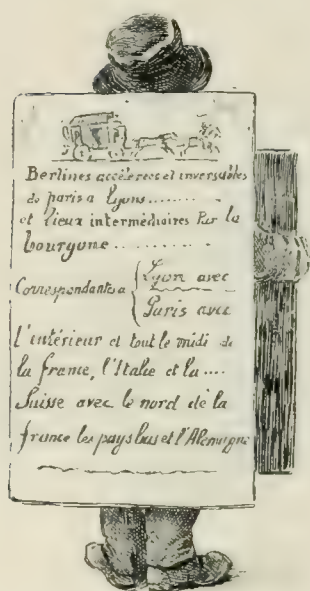 Berlines accélérées et inversables
de paris a lyons........
et lieux intermédiaires Par la
bourgone...........
Correspondantes a { Lyon avec
Paris avec
l'intérieur et tout le midi de
la france, l'Italie et la ....
Suisse avec le nord de la
france les pays bas et l'Alemagne